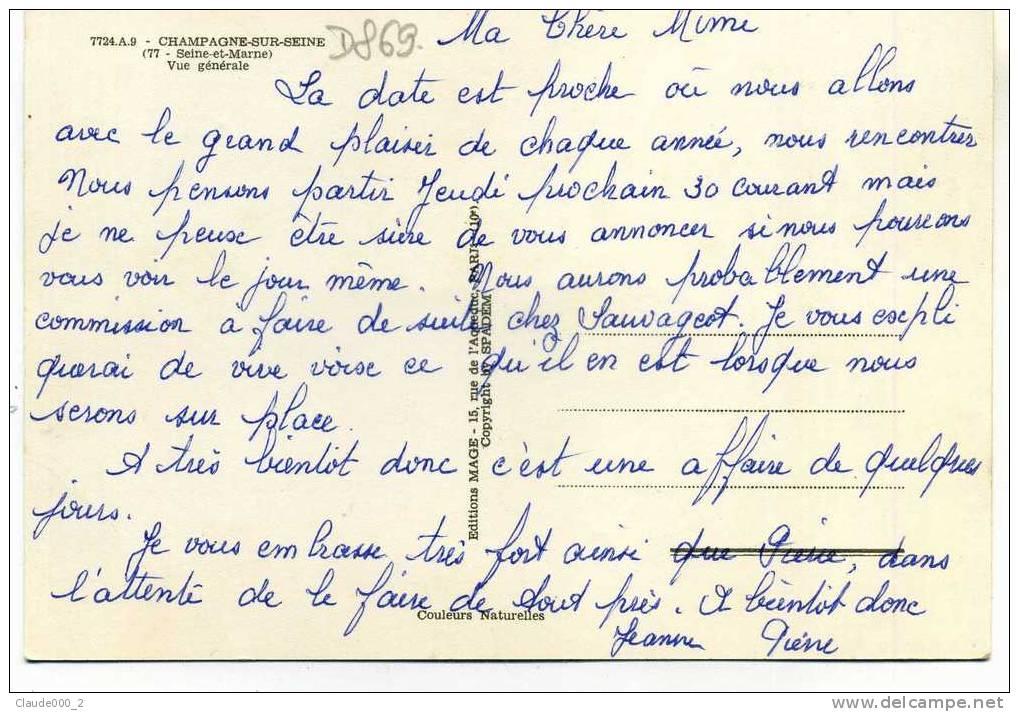 7724.A.9 - CHAMPAGNE-SUR-SEINE
(77 - Seine-et-Marne)
Vue générale
D869.
Ma Chère Mime
La date est proche où nous allons
avec le grand plaisir de chaque année, nous rencontrer
Nous pensons partir Jeudi prochain 30 courant mais
je ne peux être sûre de vous annoncer si nous pourrons
vous voir le jour même. Nous aurons probablement une
commission à faire de suite chez Sauvageot. Je vous expli
querai de vive voix ce qu'il en est lorsque nous
serons sur place.
A très bientôt donc c'est une affaire de quelques
jours.
Je vous embrasse très fort ainsi que Pierre, dans
l'attente de le faire de tout près. A bientôt donc
Jeanne Pierre
Editions MAGE - 15, rue de l'Aqueduc, PARIS (10e)
Copyright by SPADEM
Couleurs Naturelles
Claude000_2
delcampe.net